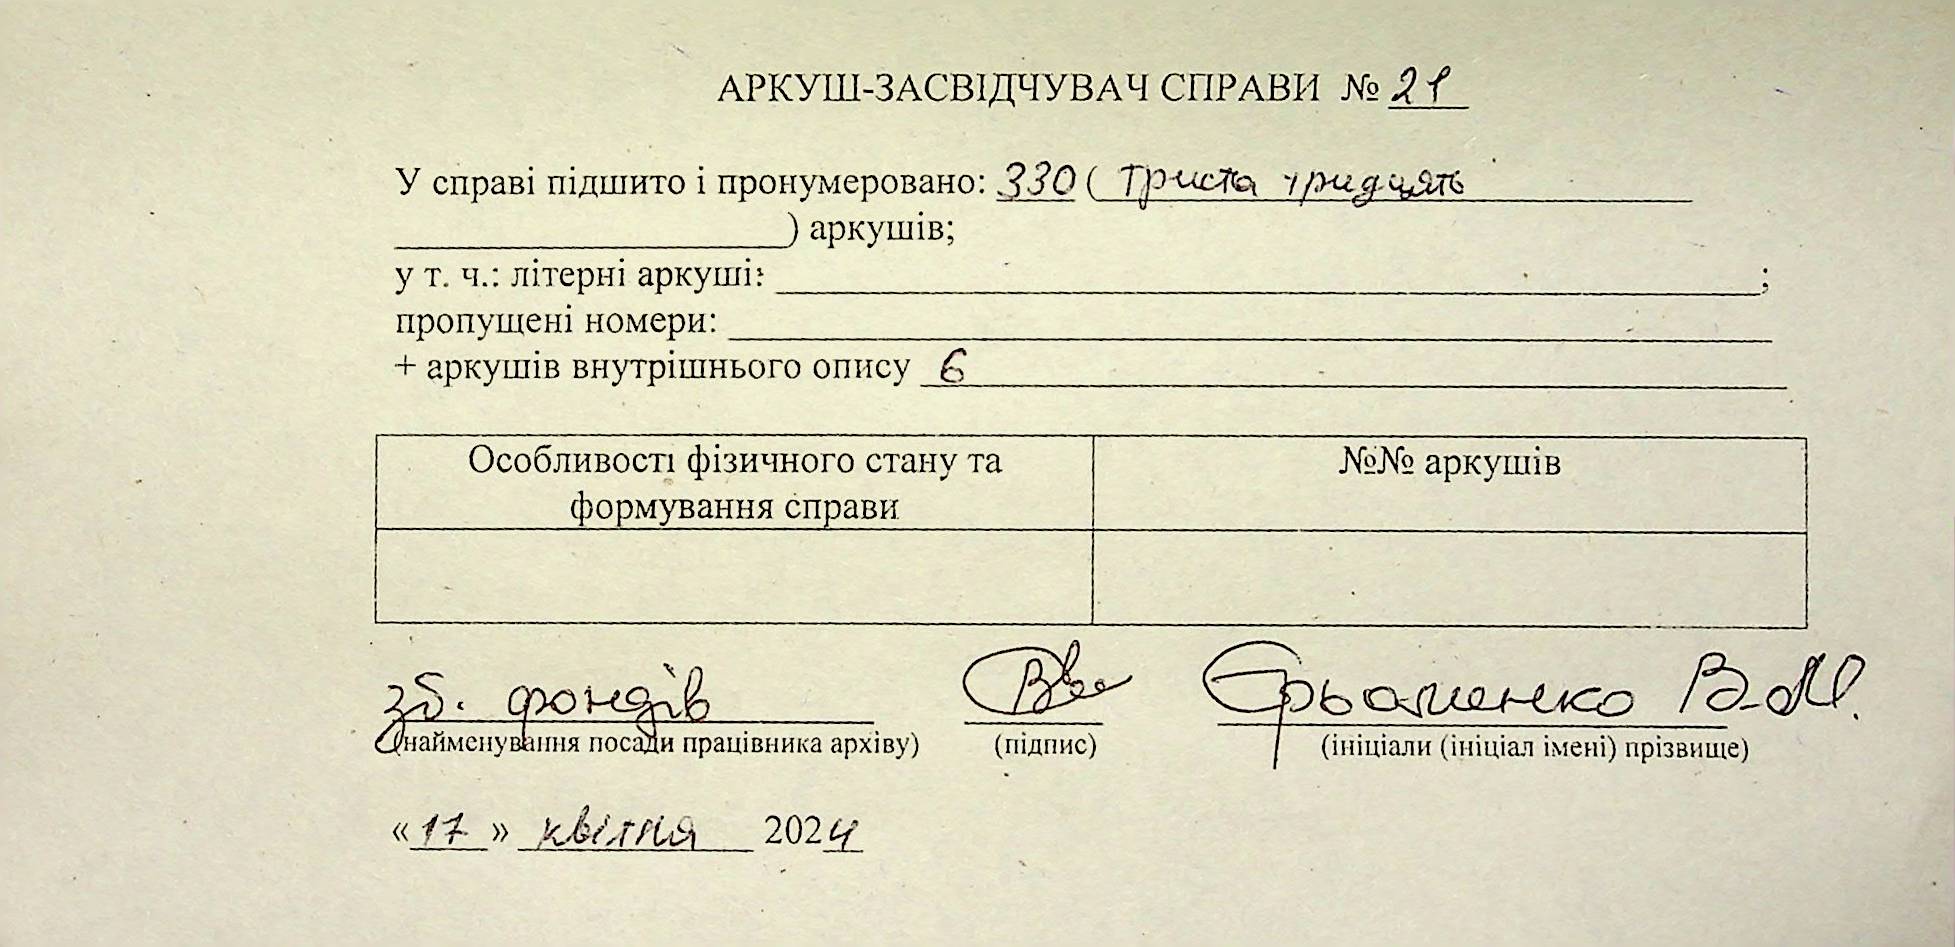 АРКУШ-ЗАСВІДЧУВАЧ СПРАВИ № 21
У справі підшито і пронумеровано: 330 ( триста тридцять
) аркушів;
у т. ч.: літерні аркуші: ;
пропущені номери:
+ аркушів внутрішнього опису 6
Особливості фізичного стану та формування справи
№№ аркушів
зб. фондів
Єрьоменко В.М.
(найменування посади працівника архіву) (підпис) (ініціали (ініціал імені) прізвище)
«17» квітня 2024